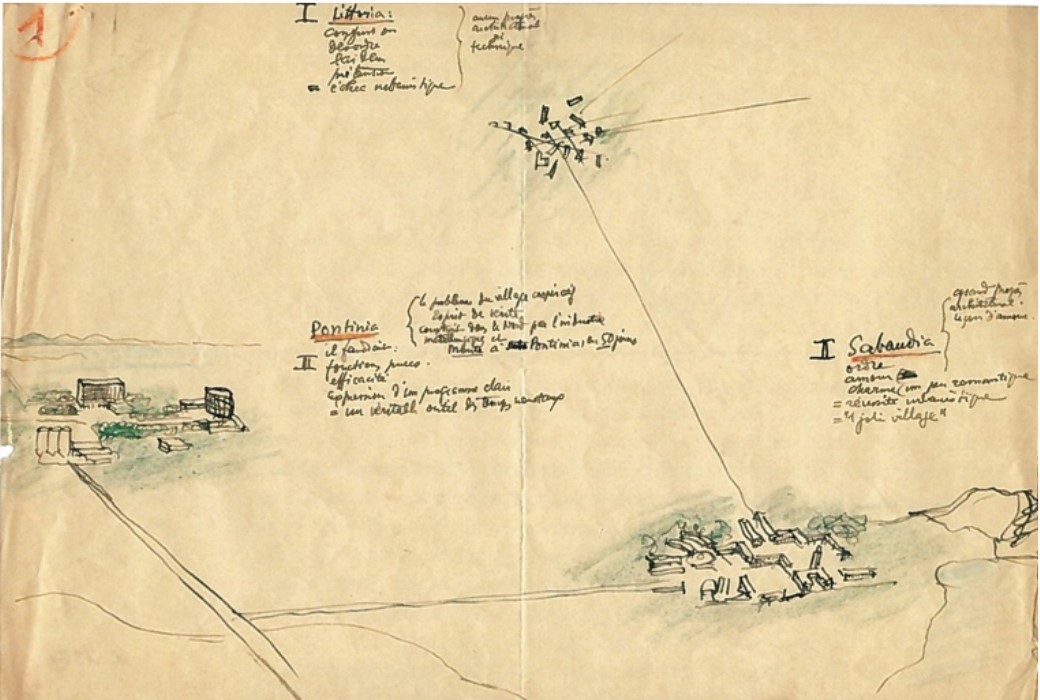 1
I Littoria:
confusion
désordre
laideur
prétention
= échec urbanistique
aucun progrès
architectural
ni
technique
Pontinia
III il faudrait:
fonctions pures.
efficacité
expression d'un programme clair
= un véritable outil des temps nouveaux
le problème du village
esprit de vérité
construit dans le Nord par l'industrie
métallurgique et
monté à Pontinia, en 50 jours
II Sabaudia
ordre
amour
charme (un peu romantique
= réussite urbanistique
= "1 joli village"
grand progrès
architectural.
leçon d'amour.